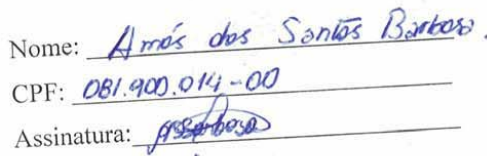 Nome: Amós dos Santos Barbosa.
CPF: 081.900.014-00
Assinatura: